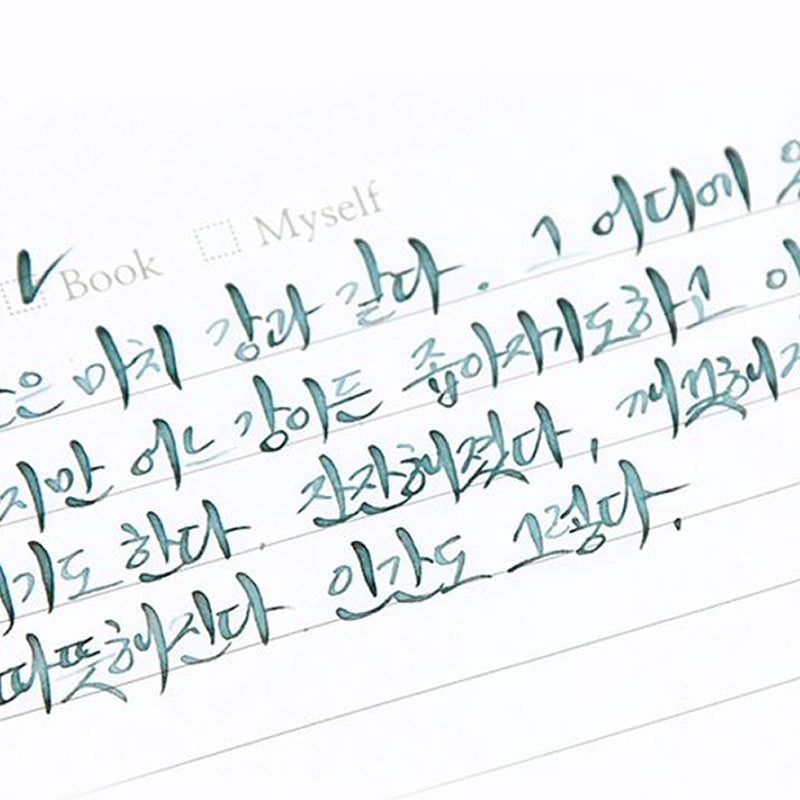 Book Myself
은 마치 강과 같다. 그 어디에
지만 어느 강이든 좁아지기도 하고
기도 한다. 잔잔해졌다, 깨끗해지
따뜻해진다 인간도 그렇다.